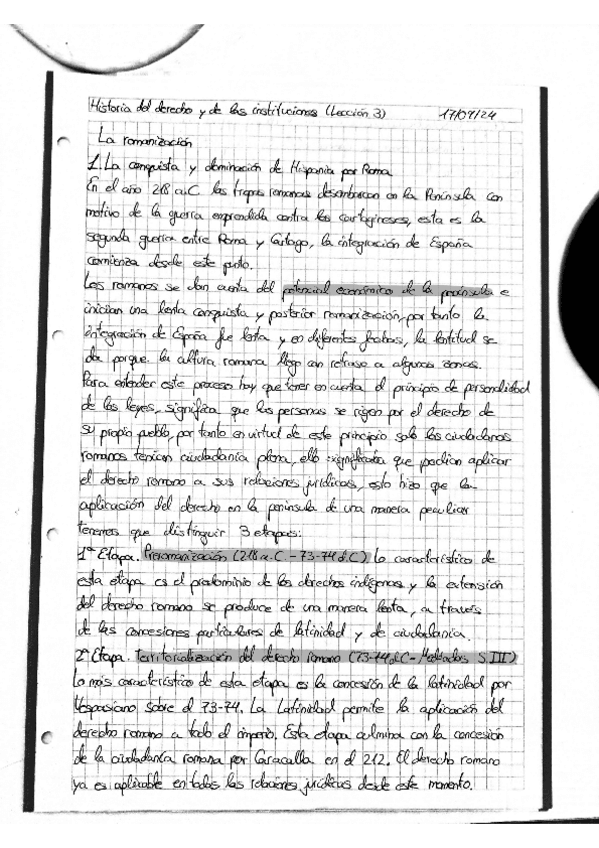 Historia del derecho y de las instituciones (Lección 3) 17/09/24
La romanización
1. La conquista y dominación de Hispania por Roma
En el año 218 a.C las tropas romanas desembarcan en la Península con
motivo de la guerra emprendida contra los cartagineses, esta es la
segunda guerra entre Roma y Cartago, la integración de España
comienza desde este punto.
Los romanos se dan cuenta del potencial económico de la península e
inician una lenta conquista y posterior romanización, por tanto la
integración de España fue lenta y en diferentes fechas, la lentitud se
da porque la cultura romana llego con retraso a algunas zonas.
Para entender este proceso hay que tener en cuenta el principio de personalidad
de las leyes, significa que las personas se rigen por el derecho de
su propio pueblo, por tanto en virtud de este principio solo los ciudadanos
romanos tenían ciudadanía plena, ello significaba que podían aplicar
el derecho romano a sus relaciones jurídicas, esto hizo que la
aplicación del derecho en la península de una manera peculiar
tenemos que distinguir 3 etapas:
1ª Etapa. Prerromanización (218 a.C. - 73-74 d.C) lo característico de
esta etapa es el predominio de los derechos indígenas y la extensión
del derecho romano se produce de una manera lenta, a través
de las concesiones particulares de latinidad y de ciudadanía.
2ª Etapa. Territorialización del derecho romano (73-74 d.C - Mediados S.III)
Lo más característico de esta etapa es la concesión de la latinidad por
Vespasiano sobre el 73-74. La Latinidad permite la aplicación del
derecho romano a todo el imperio. Esta etapa culmina con la concesión
de la ciudadanía romana por Caracalla en el 212. El derecho romano
ya es aplicable en todas las relaciones jurídicas desde este momento.